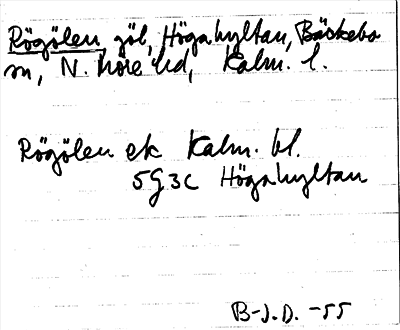 Rögölen, göl, Högahyltan, Bäckebo
sn, N. Möre hd, Kalm. l.
Rögölen ek Kalm. bl.
5G3c Högahyltan
B-J.D. -55